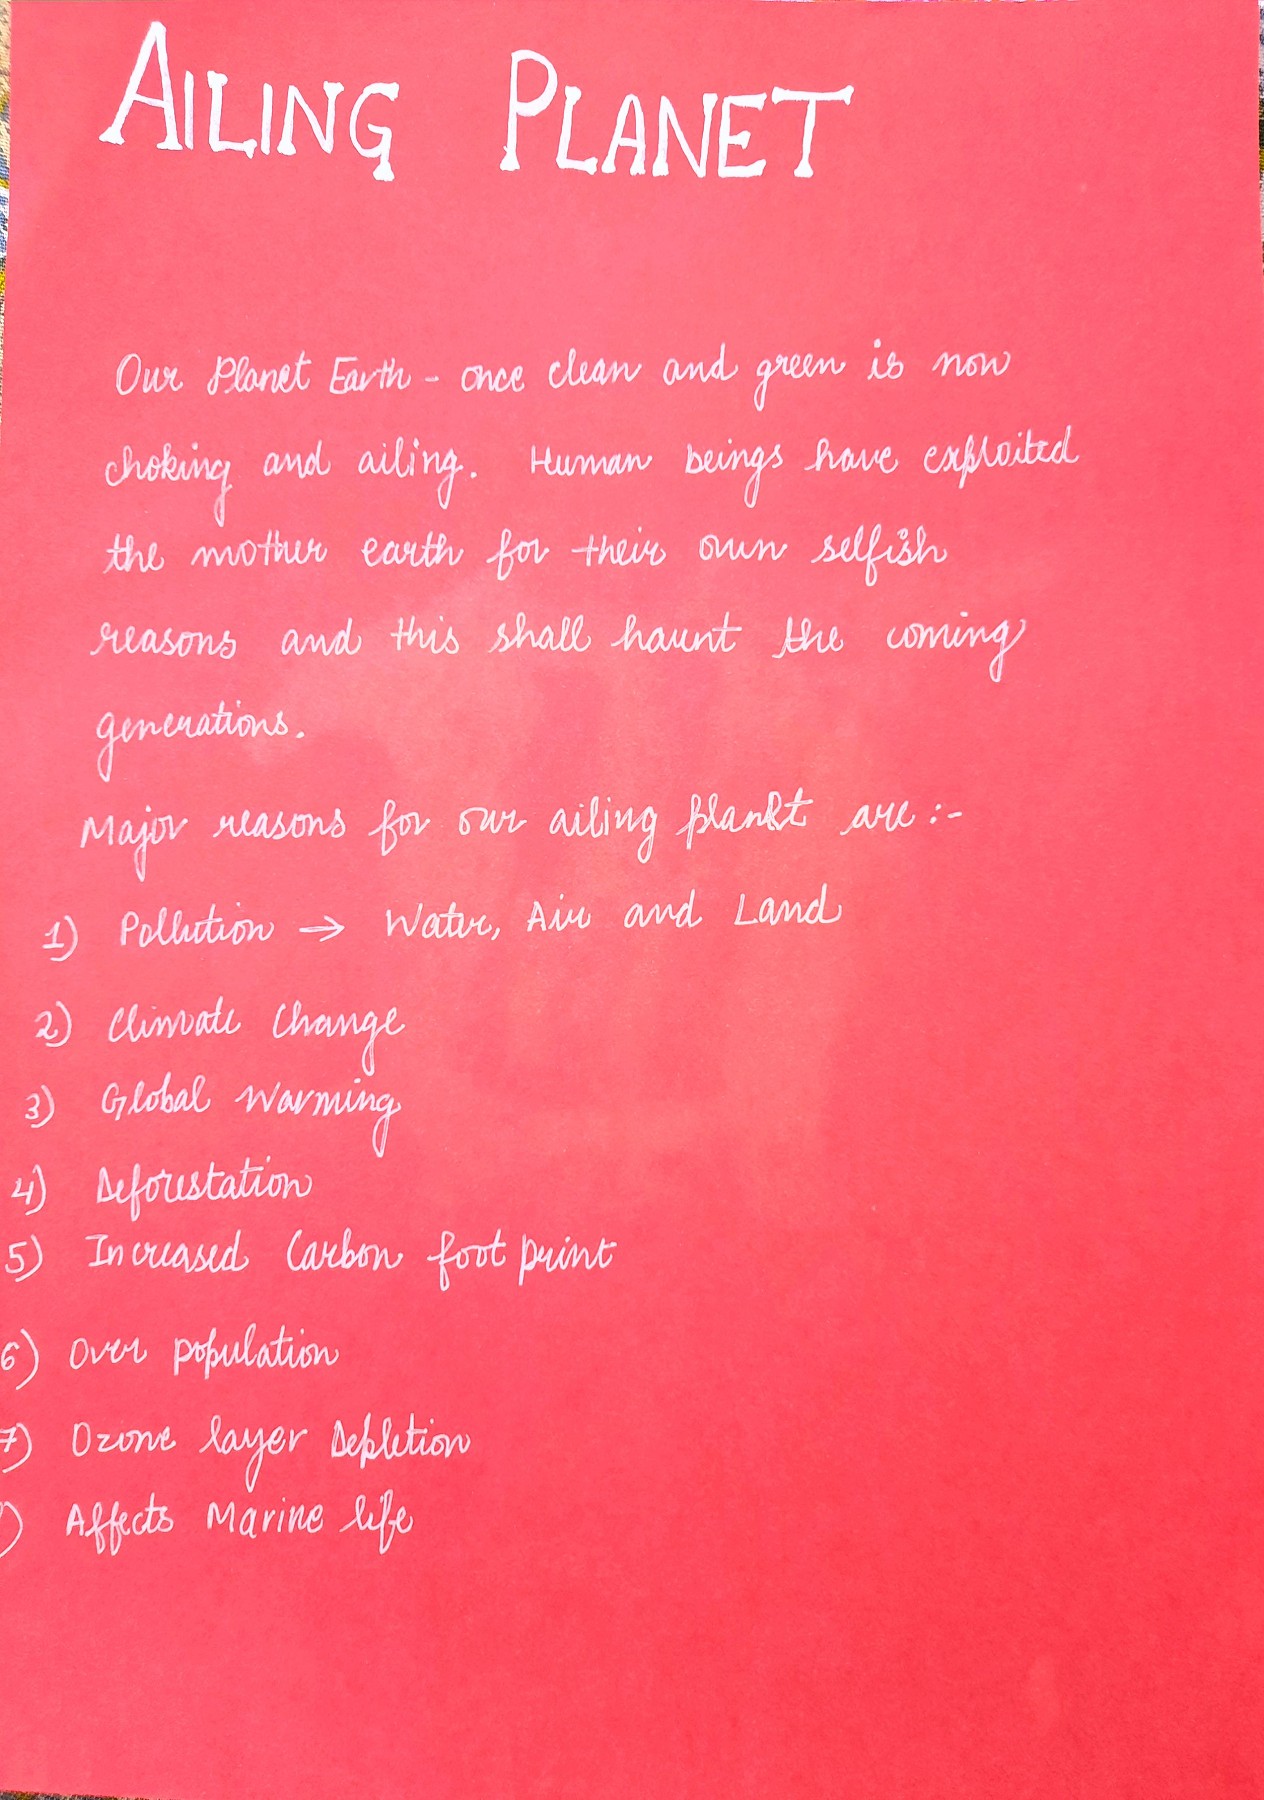 AILING PLANET
Our Planet Earth - once clean and green is now
choking and ailing. Human beings have exploited
the mother earth for their own selfish
reasons and this shall haunt the coming
generations.
Major reasons for our ailing planet are :-
1) Pollution → Water, Air and Land
2) Climate Change
3) Global Warming
4) Deforestation
5) Increased Carbon foot print
6) Over population
7) Ozone layer Depletion
) Affects Marine life